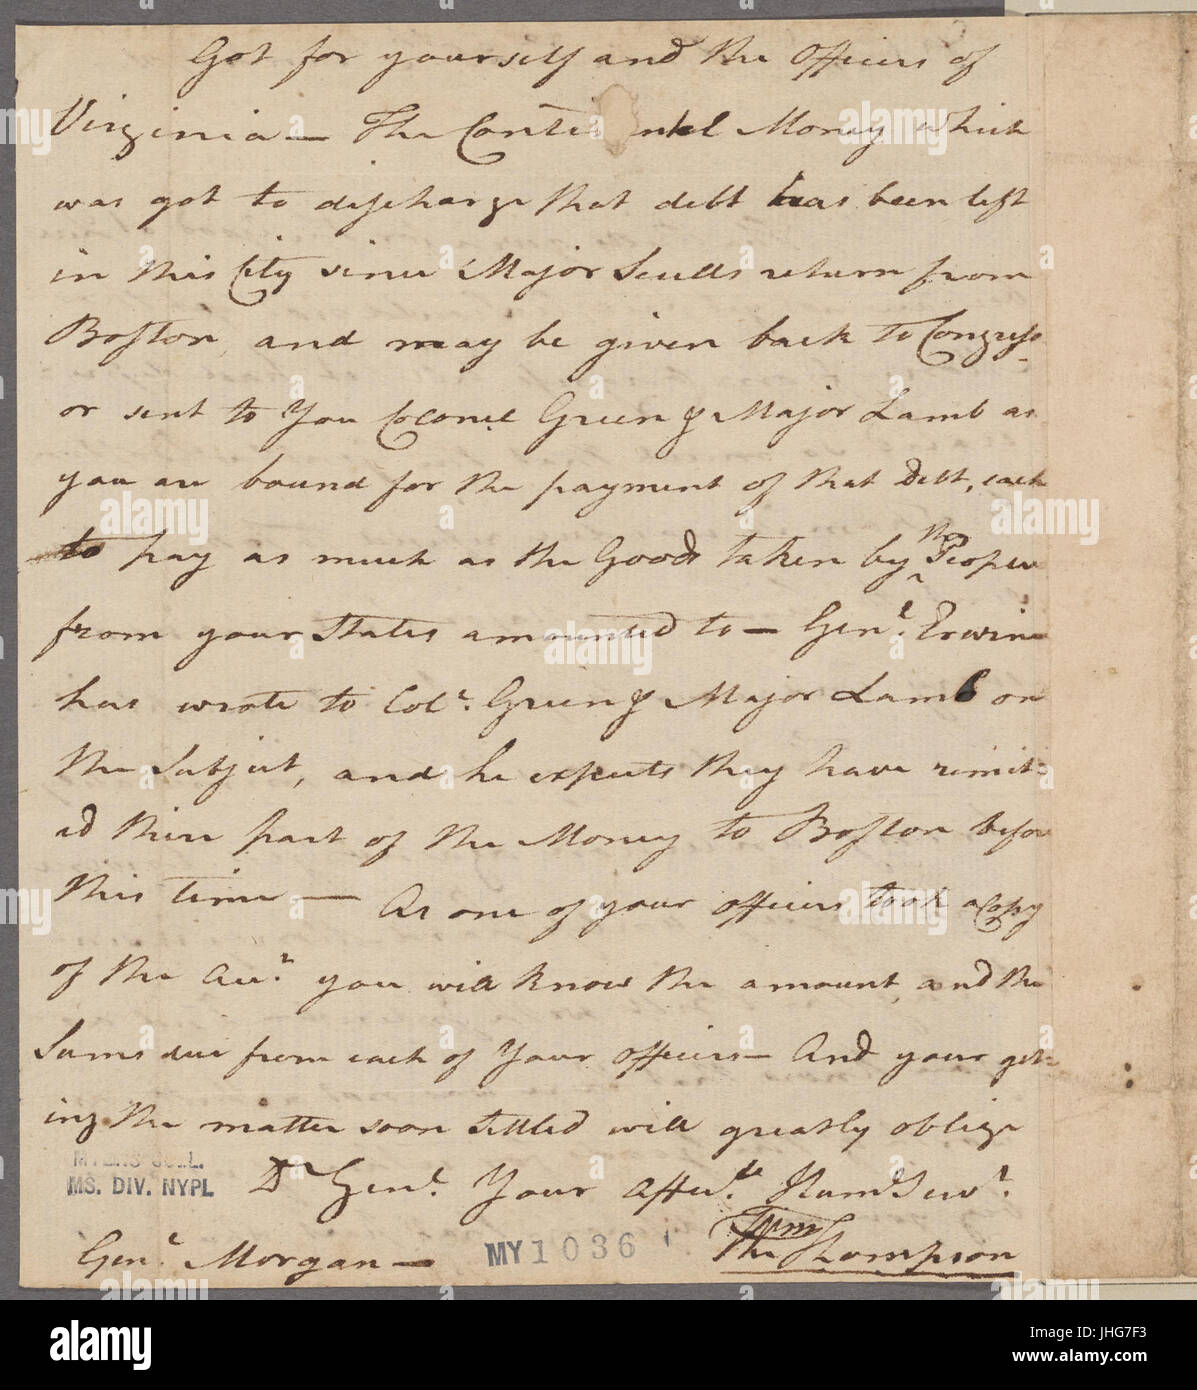 Got for yourself and the Officers of
Virginia — The Conti nl Money which
was got to discharge that debt has been left
in this City since Major Sculls return from
Boston, and may be given back to Congress
or sent to You Colonel Green & Major Lamb as
you are bound for the payment of that Debt, each
to pay as much as the Goods taken by the People
from your States amounted to — Genl. Erwine
has wrote to Col. Green & Major Lamb on
the Subject, and he expects they have remit:
ed their part of the Money to Boston before
this time — As one of your officers took a Copy
of the Acct. you will know the amount, and the
Sums due from each of Your officers — And your get:
ing the matter soon settled will greatly oblige
Dr Genl. Your Affect. Humb Servt.
Wm Thompson
Genl. Morgan —
MYERS COLL.
MS. DIV. NYPL
MY 1036
alamy
Image ID: JHG7F3
www.alamy.com